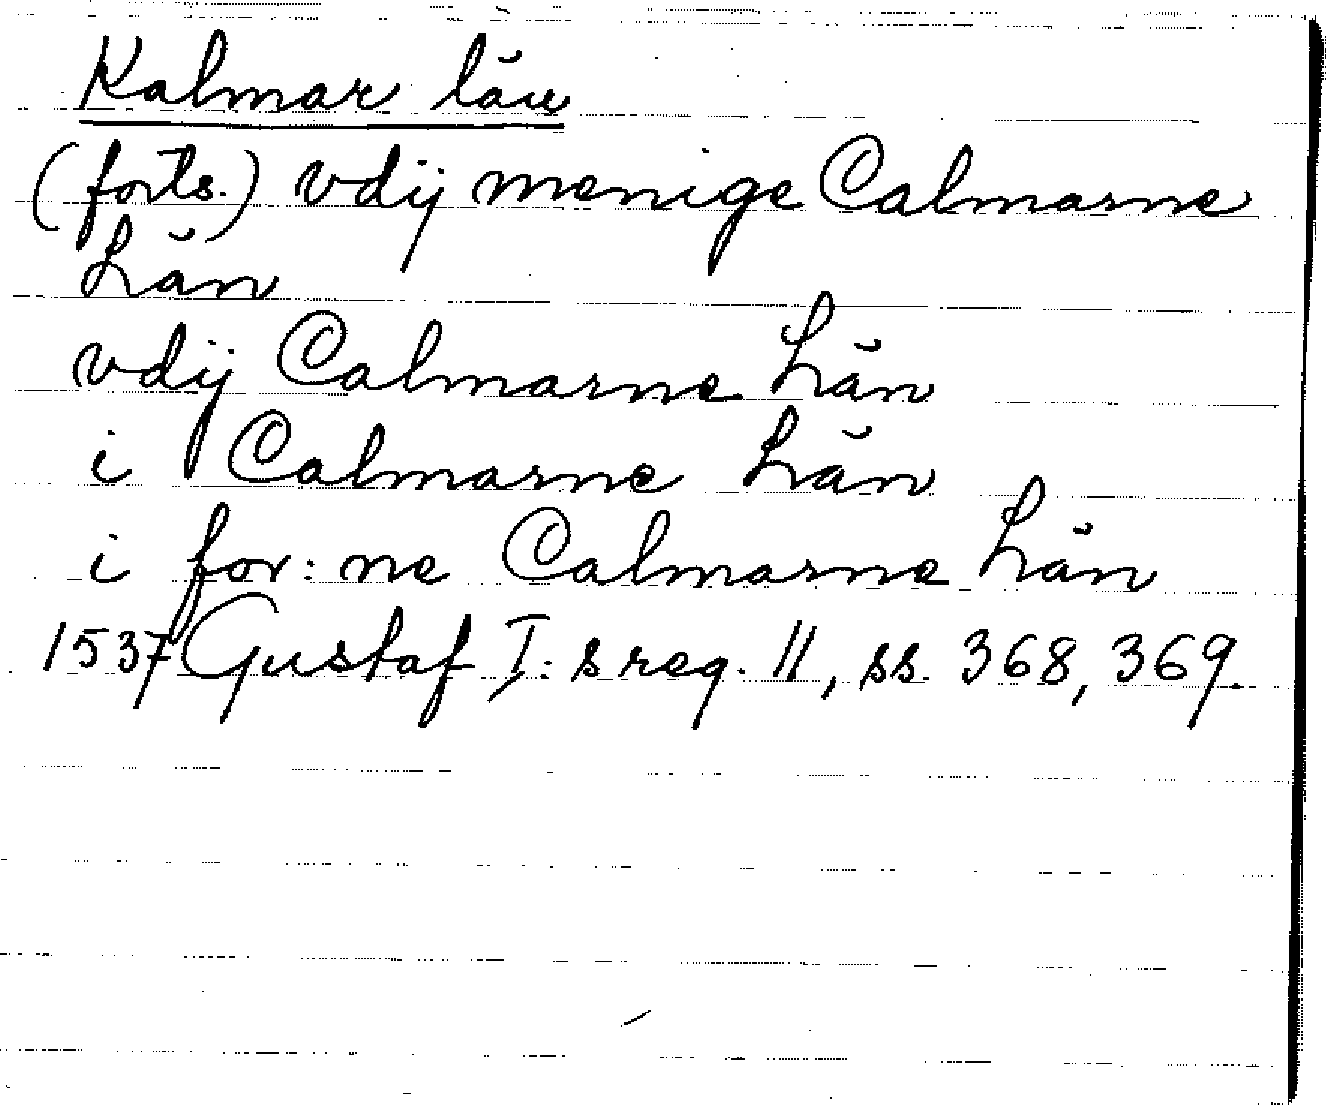 Kalmar län
(forts.) vdij menige Calmarne
Län
vdij Calmarne Län
i Calmarne Län
i for:ne Calmarne Län
1537 Gustaf I:s reg. 11, ss. 368, 369.